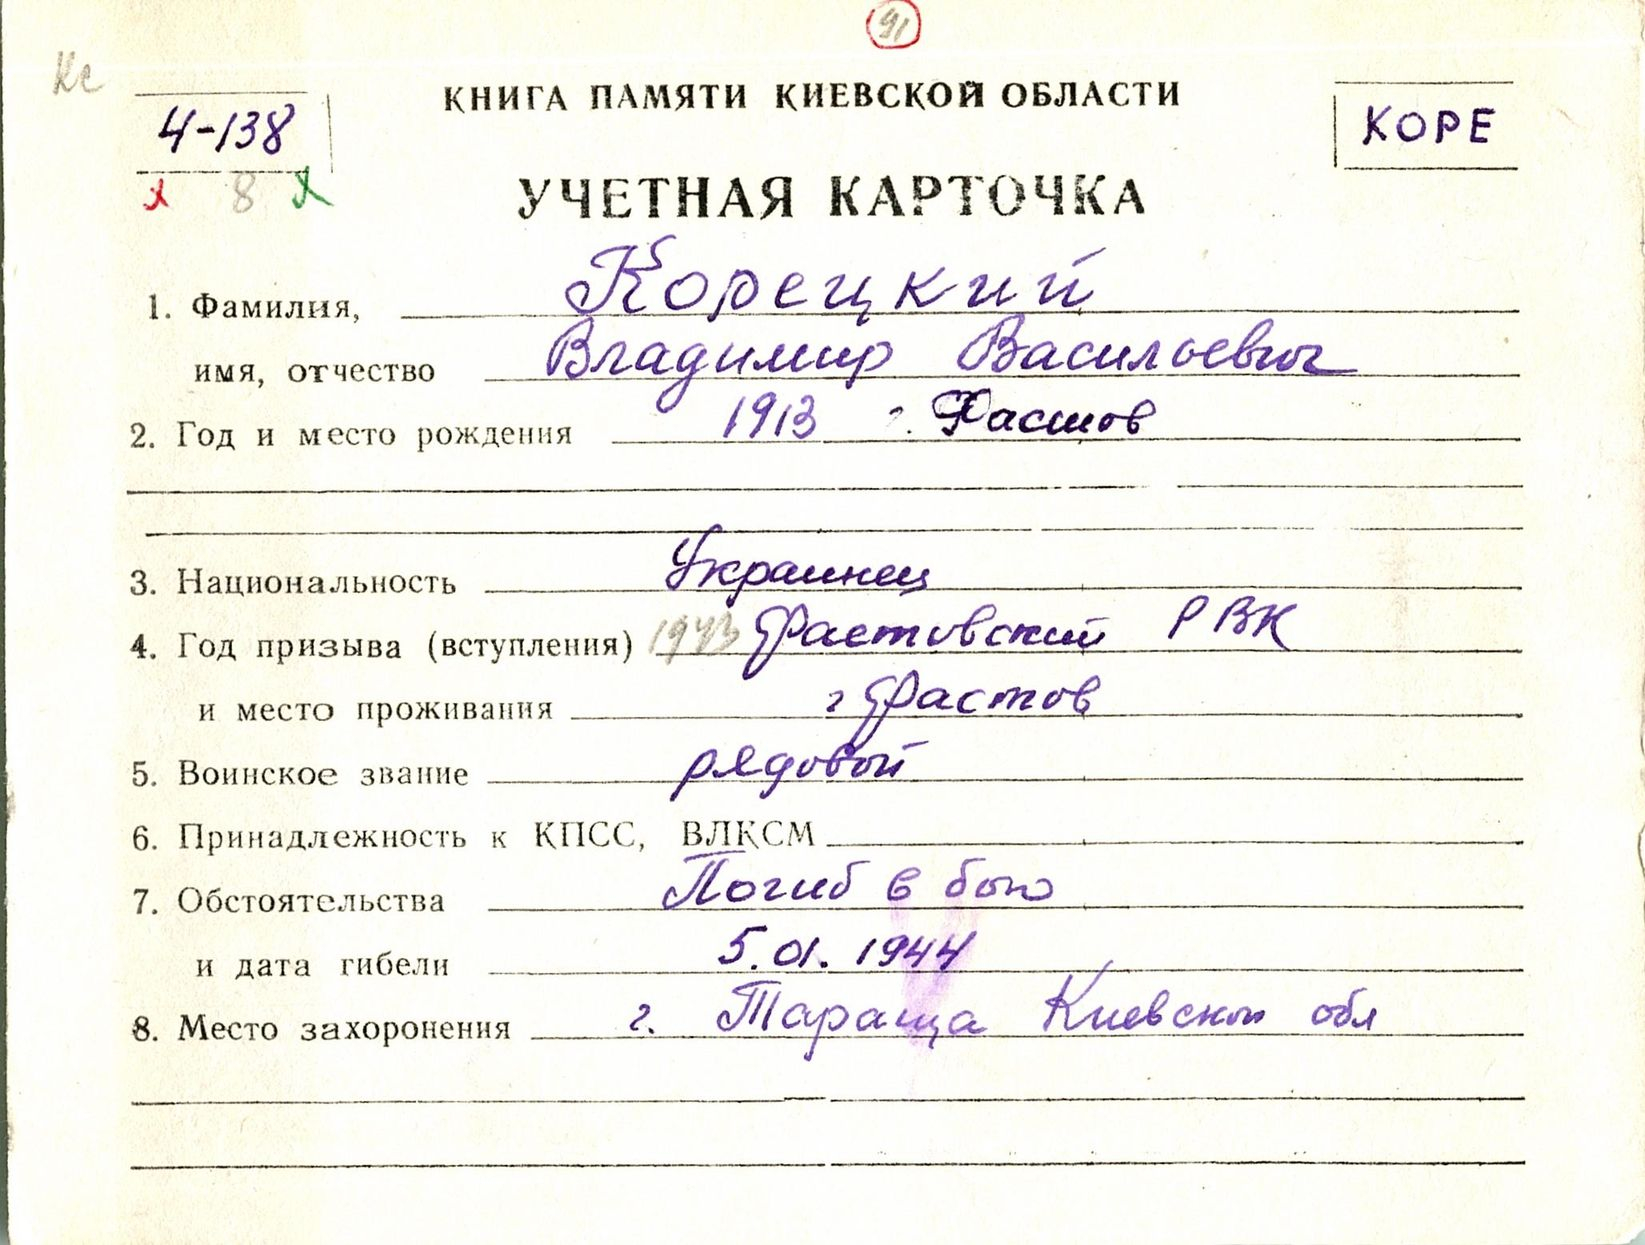 91
Кс
КНИГА ПАМЯТИ КИЕВСКОЙ ОБЛАСТИ
4-138
КОРЕ
х 8 х
УЧЕТНАЯ КАРТОЧКА
1. Фамилия, Корецкий
имя, отчество Владимир Васильевич
2. Год и место рождения 1913 г. Фастов
3. Национальность Украинец
4. Год призыва (вступления) 1943 Фастовский РВК
и место проживания г Фастов
5. Воинское звание рядовой
6. Принадлежность к КПСС, ВЛКСМ
7. Обстоятельства Погиб в бою
и дата гибели 5.01.1944
8. Место захоронения г. Тараща Киевской обл